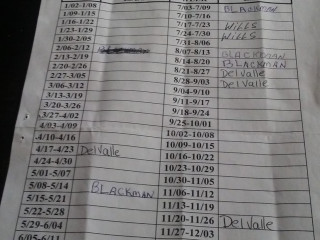 1/02-1/08 7/03-7/09 BLACKMAN
1/09-1/15 7/10-7/16
1/16-1/22 7/17-7/23 WILLS
1/23-1/29 7/24-7/30 WILLS
1/30-2/05 7/31-8/06
2/06-2/12 8/07-8/13 BLACKMAN
2/13-2/19 8/14-8/20 BLACKMAN
2/20-2/26 8/21-8/27 DelValle
2/27-3/05 8/28-9/03 DelValle
3/06-3/12 9/04-9/10
3/13-3/19 9/11-9/17
3/20-3/26 9/18-9/24
3/27-4/02 9/25-10/01
4/03-4/09 10/02-10/08
4/10-4/16 10/09-10/15
4/17-4/23 DelValle 10/16-10/22
4/24-4/30 10/23-10/29
5/01-5/07 10/30-11/05
5/08-5/14 BLACKMAN 11/06-11/12
5/15-5/21 11/13-11/19
5/22-5/28 11/20-11/26 DelValle
5/29-6/04 11/27-12/03
6/05-6/11